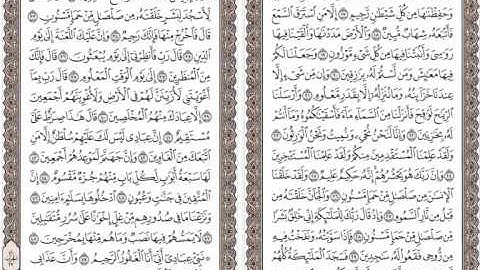 وَحَفِظْنَٰهَا مِن كُلِّ شَيْطَٰنٍ رَّجِيمٍ ١٧ إِلَّا مَنِ ٱسْتَرَقَ ٱلسَّمْعَ
فَأَتْبَعَهُۥ شِهَابٌ مُّبِينٌ ١٨ وَٱلْأَرْضَ مَدَدْنَٰهَا وَأَلْقَيْنَا فِيهَا
رَوَٰسِىَ وَأَنۢبَتْنَا فِيهَا مِن كُلِّ شَىْءٍ مَّوْزُونٍ ١٩ وَجَعَلْنَا لَكُمْ
فِيهَا مَعَٰيِشَ وَمَن لَّسْتُمْ لَهُۥ بِرَٰزِقِينَ ٢٠ وَإِن مِّن شَىْءٍ إِلَّا
عِندَنَا خَزَآئِنُهُۥ وَمَا نُنَزِّلُهُۥٓ إِلَّا بِقَدَرٍ مَّعْلُومٍ ٢١ وَأَرْسَلْنَا
ٱلرِّيَٰحَ لَوَٰقِحَ فَأَنزَلْنَا مِنَ ٱلسَّمَآءِ مَآءً فَأَسْقَيْنَٰكُمُوهُ وَمَآ أَنتُمْ
لَهُۥ بِخَٰزِنِينَ ٢٢ وَإِنَّا لَنَحْنُ نُحْىِۦ وَنُمِيتُ وَنَحْنُ ٱلْوَٰرِثُونَ ٢٣
وَلَقَدْ عَلِمْنَا ٱلْمُسْتَقْدِمِينَ مِنكُمْ وَلَقَدْ عَلِمْنَا ٱلْمُسْتَـْٔخِرِينَ
٢٤ وَإِنَّ رَبَّكَ هُوَ يَحْشُرُهُمْ إِنَّهُۥ حَكِيمٌ عَلِيمٌ ٢٥ وَلَقَدْ خَلَقْنَا
ٱلْإِنسَٰنَ مِن صَلْصَٰلٍ مِّنْ حَمَإٍ مَّسْنُونٍ ٢٦ وَٱلْجَآنَّ خَلَقْنَٰهُ مِن
قَبْلُ مِن نَّارِ ٱلسَّمُومِ ٢٧ وَإِذْ قَالَ رَبُّكَ لِلْمَلَٰٓئِكَةِ إِنِّى خَٰلِقٌۢ بَشَرًا
مِّن صَلْصَٰلٍ مِّنْ حَمَإٍ مَّسْنُونٍ ٢٨ فَإِذَا سَوَّيْتُهُۥ وَنَفَخْتُ فِيهِ
مِن رُّوحِى فَقَعُوا۟ لَهُۥ سَٰجِدِينَ ٢٩ فَسَجَدَ ٱلْمَلَٰٓئِكَةُ كُلُّهُمْ
لِأَسْجُدَ لِبَشَرٍ خَلَقْتَهُۥ مِن صَلْصَٰلٍ مِّنْ حَمَإٍ مَّسْنُونٍ ٣٣
قَالَ فَٱخْرُجْ مِنْهَا فَإِنَّكَ رَجِيمٌ ٣٤ وَإِنَّ عَلَيْكَ ٱللَّعْنَةَ إِلَىٰ يَوْمِ
ٱلدِّينِ ٣٥ قَالَ رَبِّ فَأَنظِرْنِىٓ إِلَىٰ يَوْمِ يُبْعَثُونَ ٣٦ قَالَ فَإِنَّكَ
مِنَ ٱلْمُنظَرِينَ ٣٧ إِلَىٰ يَوْمِ ٱلْوَقْتِ ٱلْمَعْلُومِ ٣٨ قَالَ رَبِّ بِمَآ
أَغْوَيْتَنِى لَأُزَيِّنَنَّ لَهُمْ فِى ٱلْأَرْضِ وَلَأُغْوِيَنَّهُمْ أَجْمَعِينَ
٣٩ إِلَّا عِبَادَكَ مِنْهُمُ ٱلْمُخْلَصِينَ ٤٠ قَالَ هَٰذَا صِرَٰطٌ عَلَىَّ
مُسْتَقِيمٌ ٤١ إِنَّ عِبَادِى لَيْسَ لَكَ عَلَيْهِمْ سُلْطَٰنٌ إِلَّا مَنِ
ٱتَّبَعَكَ مِنَ ٱلْغَاوِينَ ٤٢ وَإِنَّ جَهَنَّمَ لَمَوْعِدُهُمْ أَجْمَعِينَ ٤٣
لَهَا سَبْعَةُ أَبْوَٰبٍ لِّكُلِّ بَابٍ مِّنْهُمْ جُزْءٌ مَّقْسُومٌ ٤٤ إِنَّ
ٱلْمُتَّقِينَ فِى جَنَّٰتٍ وَعُيُونٍ ٤٥ ٱدْخُلُوهَا بِسَلَٰمٍ ءَامِنِينَ ٤٦
وَنَزَعْنَا مَا فِى صُدُورِهِم مِّنْ غِلٍّ إِخْوَٰنًا عَلَىٰ سُرُرٍ مُّتَقَٰبِلِينَ
٤٧ لَا يَمَسُّهُمْ فِيهَا نَصَبٌ وَمَا هُم مِّنْهَا بِمُخْرَجِينَ ٤٨
نَبِّئْ عِبَادِىٓ أَنِّىٓ أَنَا ٱلْغَفُورُ ٱلرَّحِيمُ ٤٩ وَأَنَّ عَذَابِى